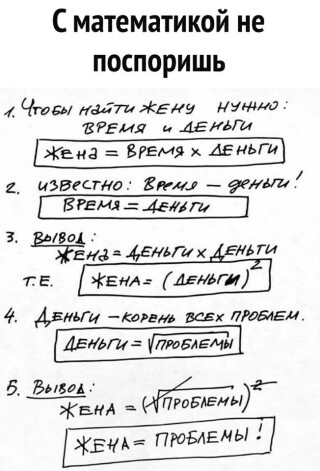 С математикой не
поспоришь
1. Чтобы найти жену нужно:
время и деньги
Жена = время x деньги
2. Известно: Время – деньги!
Время = деньги
3. Вывод:
Жена = деньги x деньги
т.е. Жена = (деньги)²
4. Деньги – корень всех проблем.
Деньги = √проблемы
5. Вывод:
Жена = (√проблемы)²
Жена = проблемы!